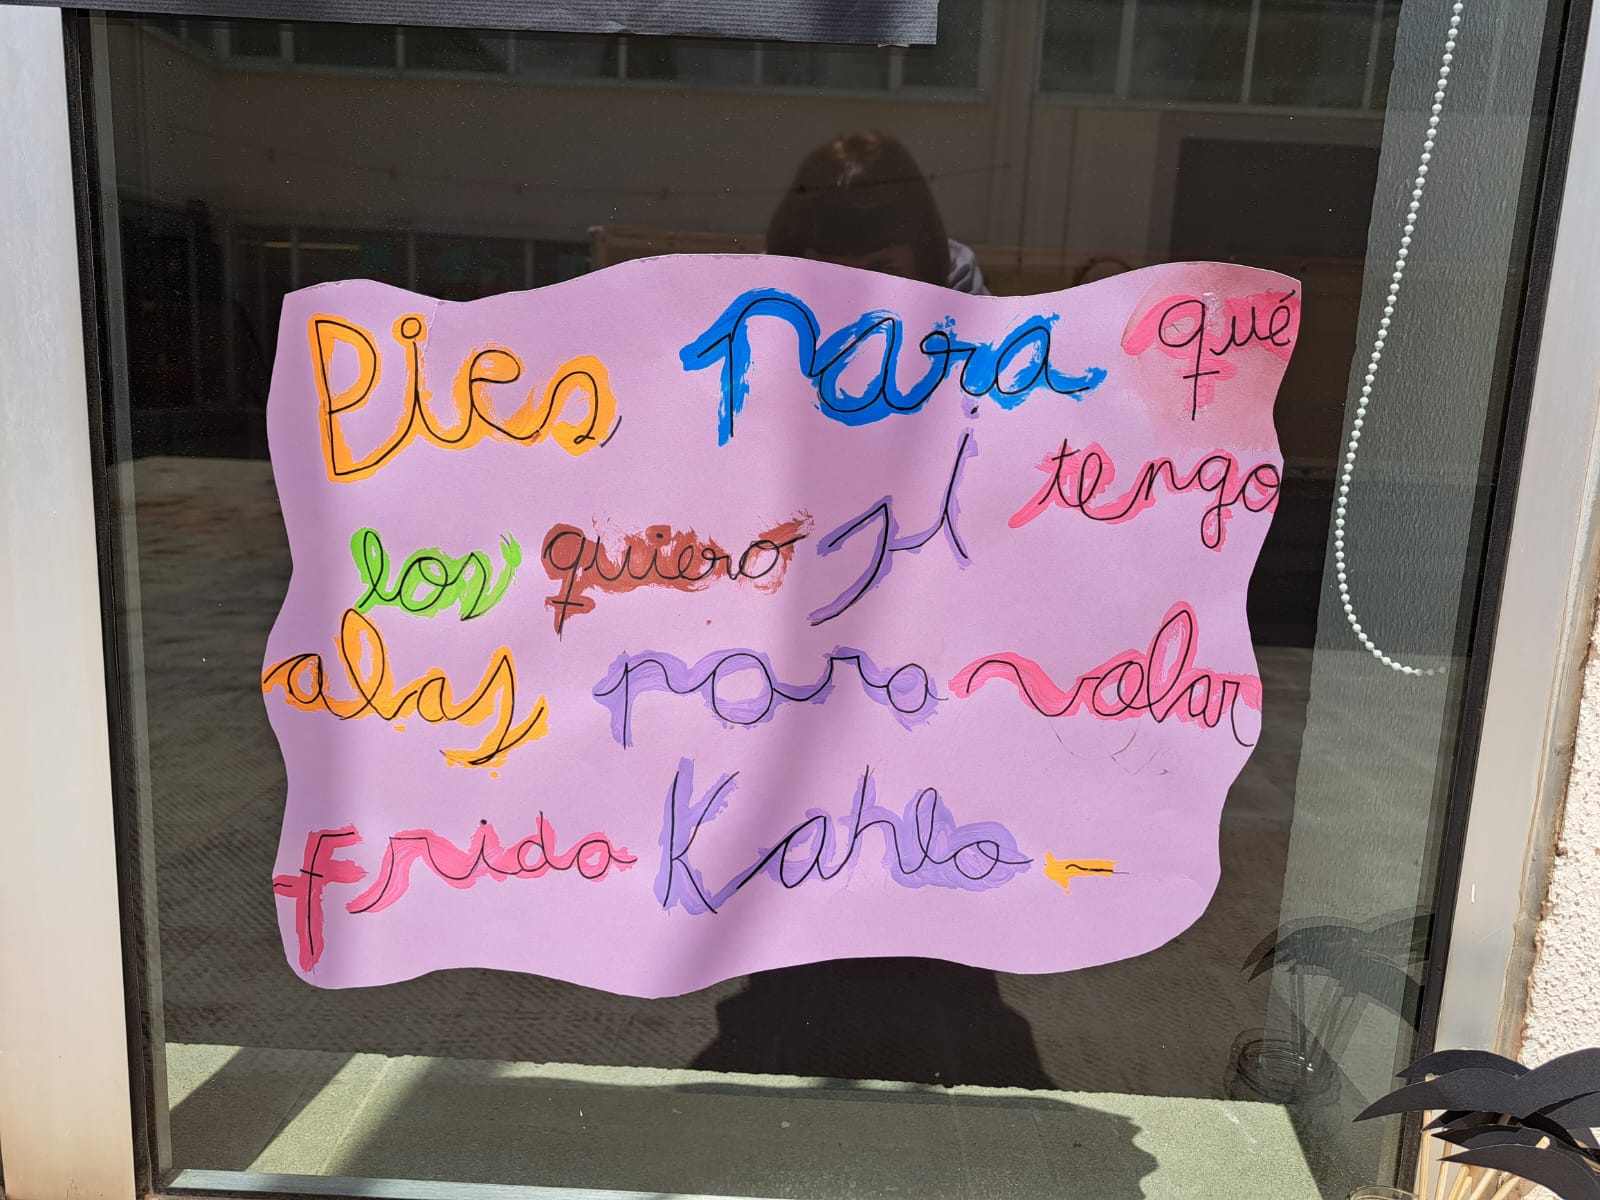 Pies para qué
los quiero si tengo
alas para volar
Frida Kahlo-